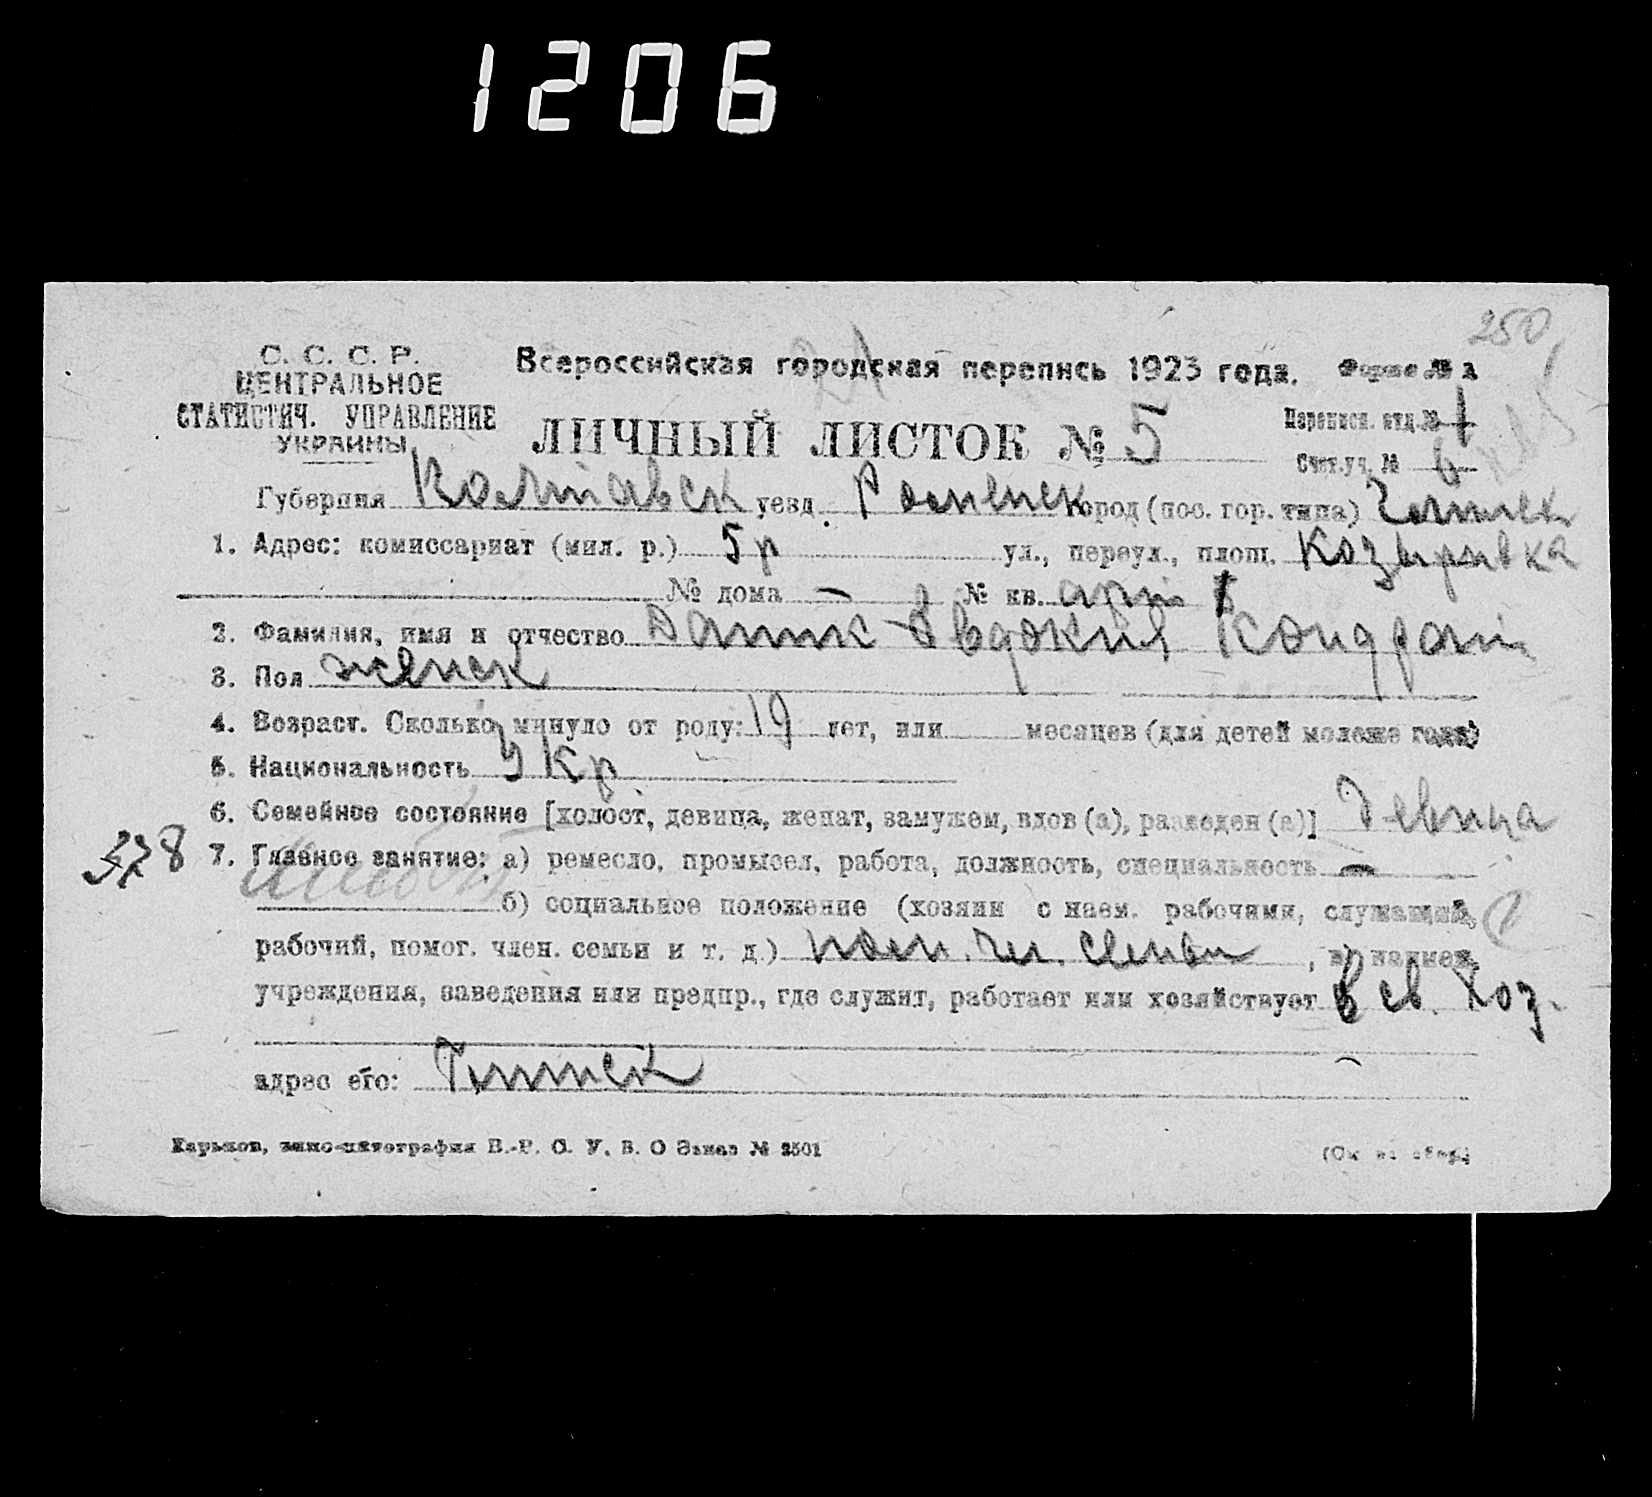 1206
250
С. С. С. Р.
ЦЕНТРАЛЬНОЕ
СТАТИСТИЧ. УПРАВЛЕНИЕ
УКРАИНЫ
Всероссийская городская перепись 1923 года. Форма № 
ЛИЧНЫЙ ЛИСТОК № 5
Переписн. отд. № 1
Счет. уч. № 6
Губерния Полтавск уезд Роменск город (пос. гор. типа)
1. Адрес: комиссариат (мил. р.) 5 р ул., переул., площ. Козыривка
№ дома — № кв.
2. Фамилия, имя и отчество Евдокия Кондрат
3. Пол женск
4. Возраст. Сколько минуло от роду: 19 лет, или месяцев (для детей моложе года)
5. Национальность Укр
6. Семейное состояние [холост, девица, женат, замужем, вдов (а), разведен (а)] девица
378
7. Главное занятие: а) ремесло, промысел, работа, должность, специальность —
б) социальное положение (хозяин с наем. рабочими, служащий,
рабочий, помог. член. семьи и т. д.) пом. чл. семьи , в) наимен.
учреждения, заведения или предпр., где служит, работает или хозяйствует в св. хоз.
адрес его:
Харьков, В.-Р. С. У. В. О Заказ № 2501